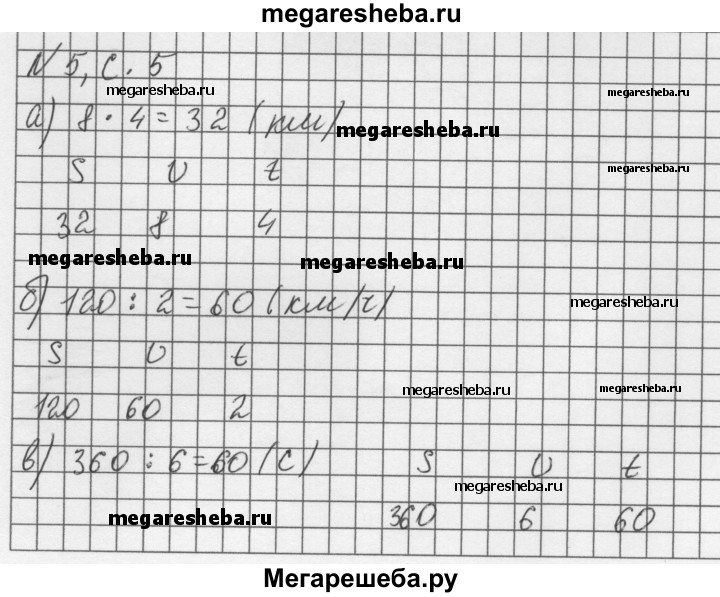 megaresheba.ru
N 5, с. 5
megaresheba.ru megaresheba.ru
а) 8 · 4 = 32 (км) megaresheba.ru
S V t megaresheba.ru
32 8 4
megaresheba.ru megaresheba.ru
б) 120 : 2 = 60 (км/ч) megaresheba.ru
S V t
megaresheba.ru megaresheba.ru
120 60 2
в) 360 : 6 = 60 (с) S V t
megaresheba.ru
megaresheba.ru 360 6 60
Мегарешеба.ру